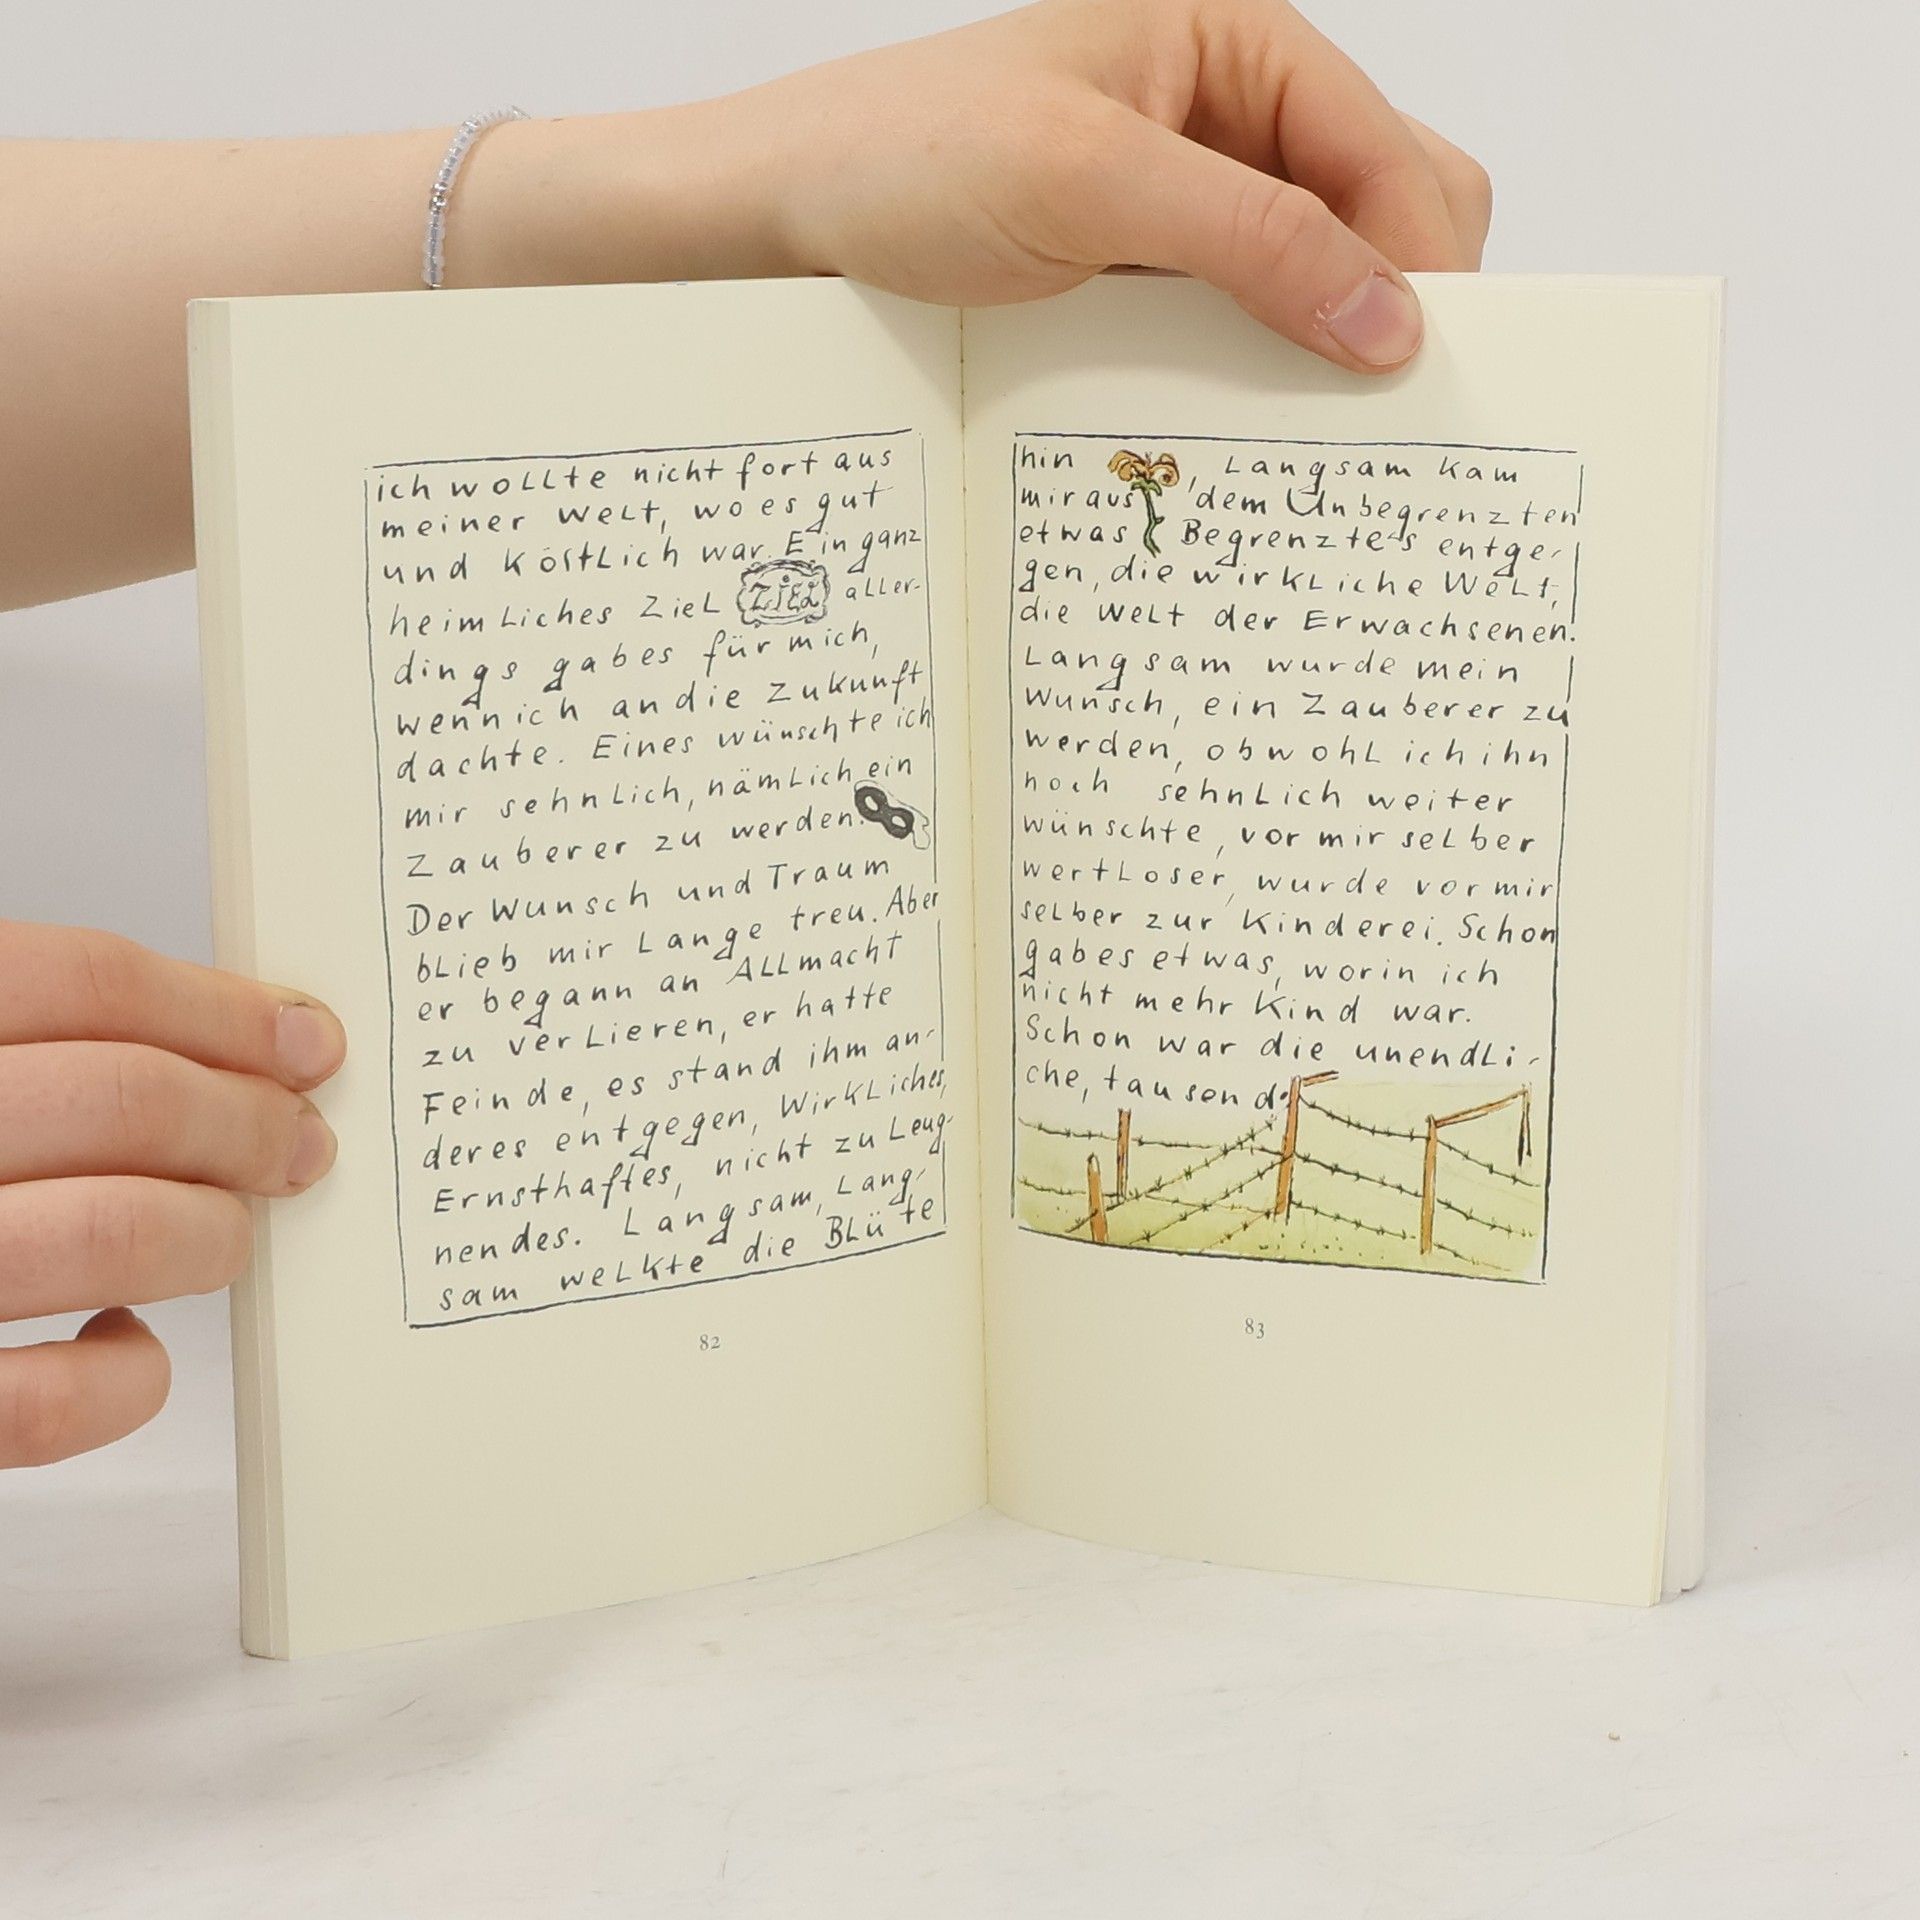 ich wollte nicht fort aus
meiner Welt, wo es gut
und köstlich war. Ein ganz
heimliches Ziel ZIEL aller-
dings gab es für mich,
wenn ich an die Zukunft
dachte. Eines wünschte ich
mir sehnlich, nämlich ein
Zauberer zu werden.
Der Wunsch und Traum
blieb mir lange treu. Aber
er begann an Allmacht
zu verlieren, er hatte
Feinde, es stand ihm an-
deres entgegen, Wirkliches,
Ernsthaftes, nicht zu Leug-
nendes. Langsam, lang-
sam welkte die Blüte
82
hin, Langsam kam
mir aus dem Unbegrenzten
etwas Begrenztes entge-
gen, die wirkliche Welt,
die Welt der Erwachsenen.
Langsam wurde mein
Wunsch, ein Zauberer zu
werden, obwohl ich ihn
noch sehnlich weiter
wünschte, vor mir selber
wertloser, wurde vor mir
selber zur Kinderei. Schon
gab es etwas, worin ich
nicht mehr Kind war.
Schon war die unendli-
che, tausend-
83